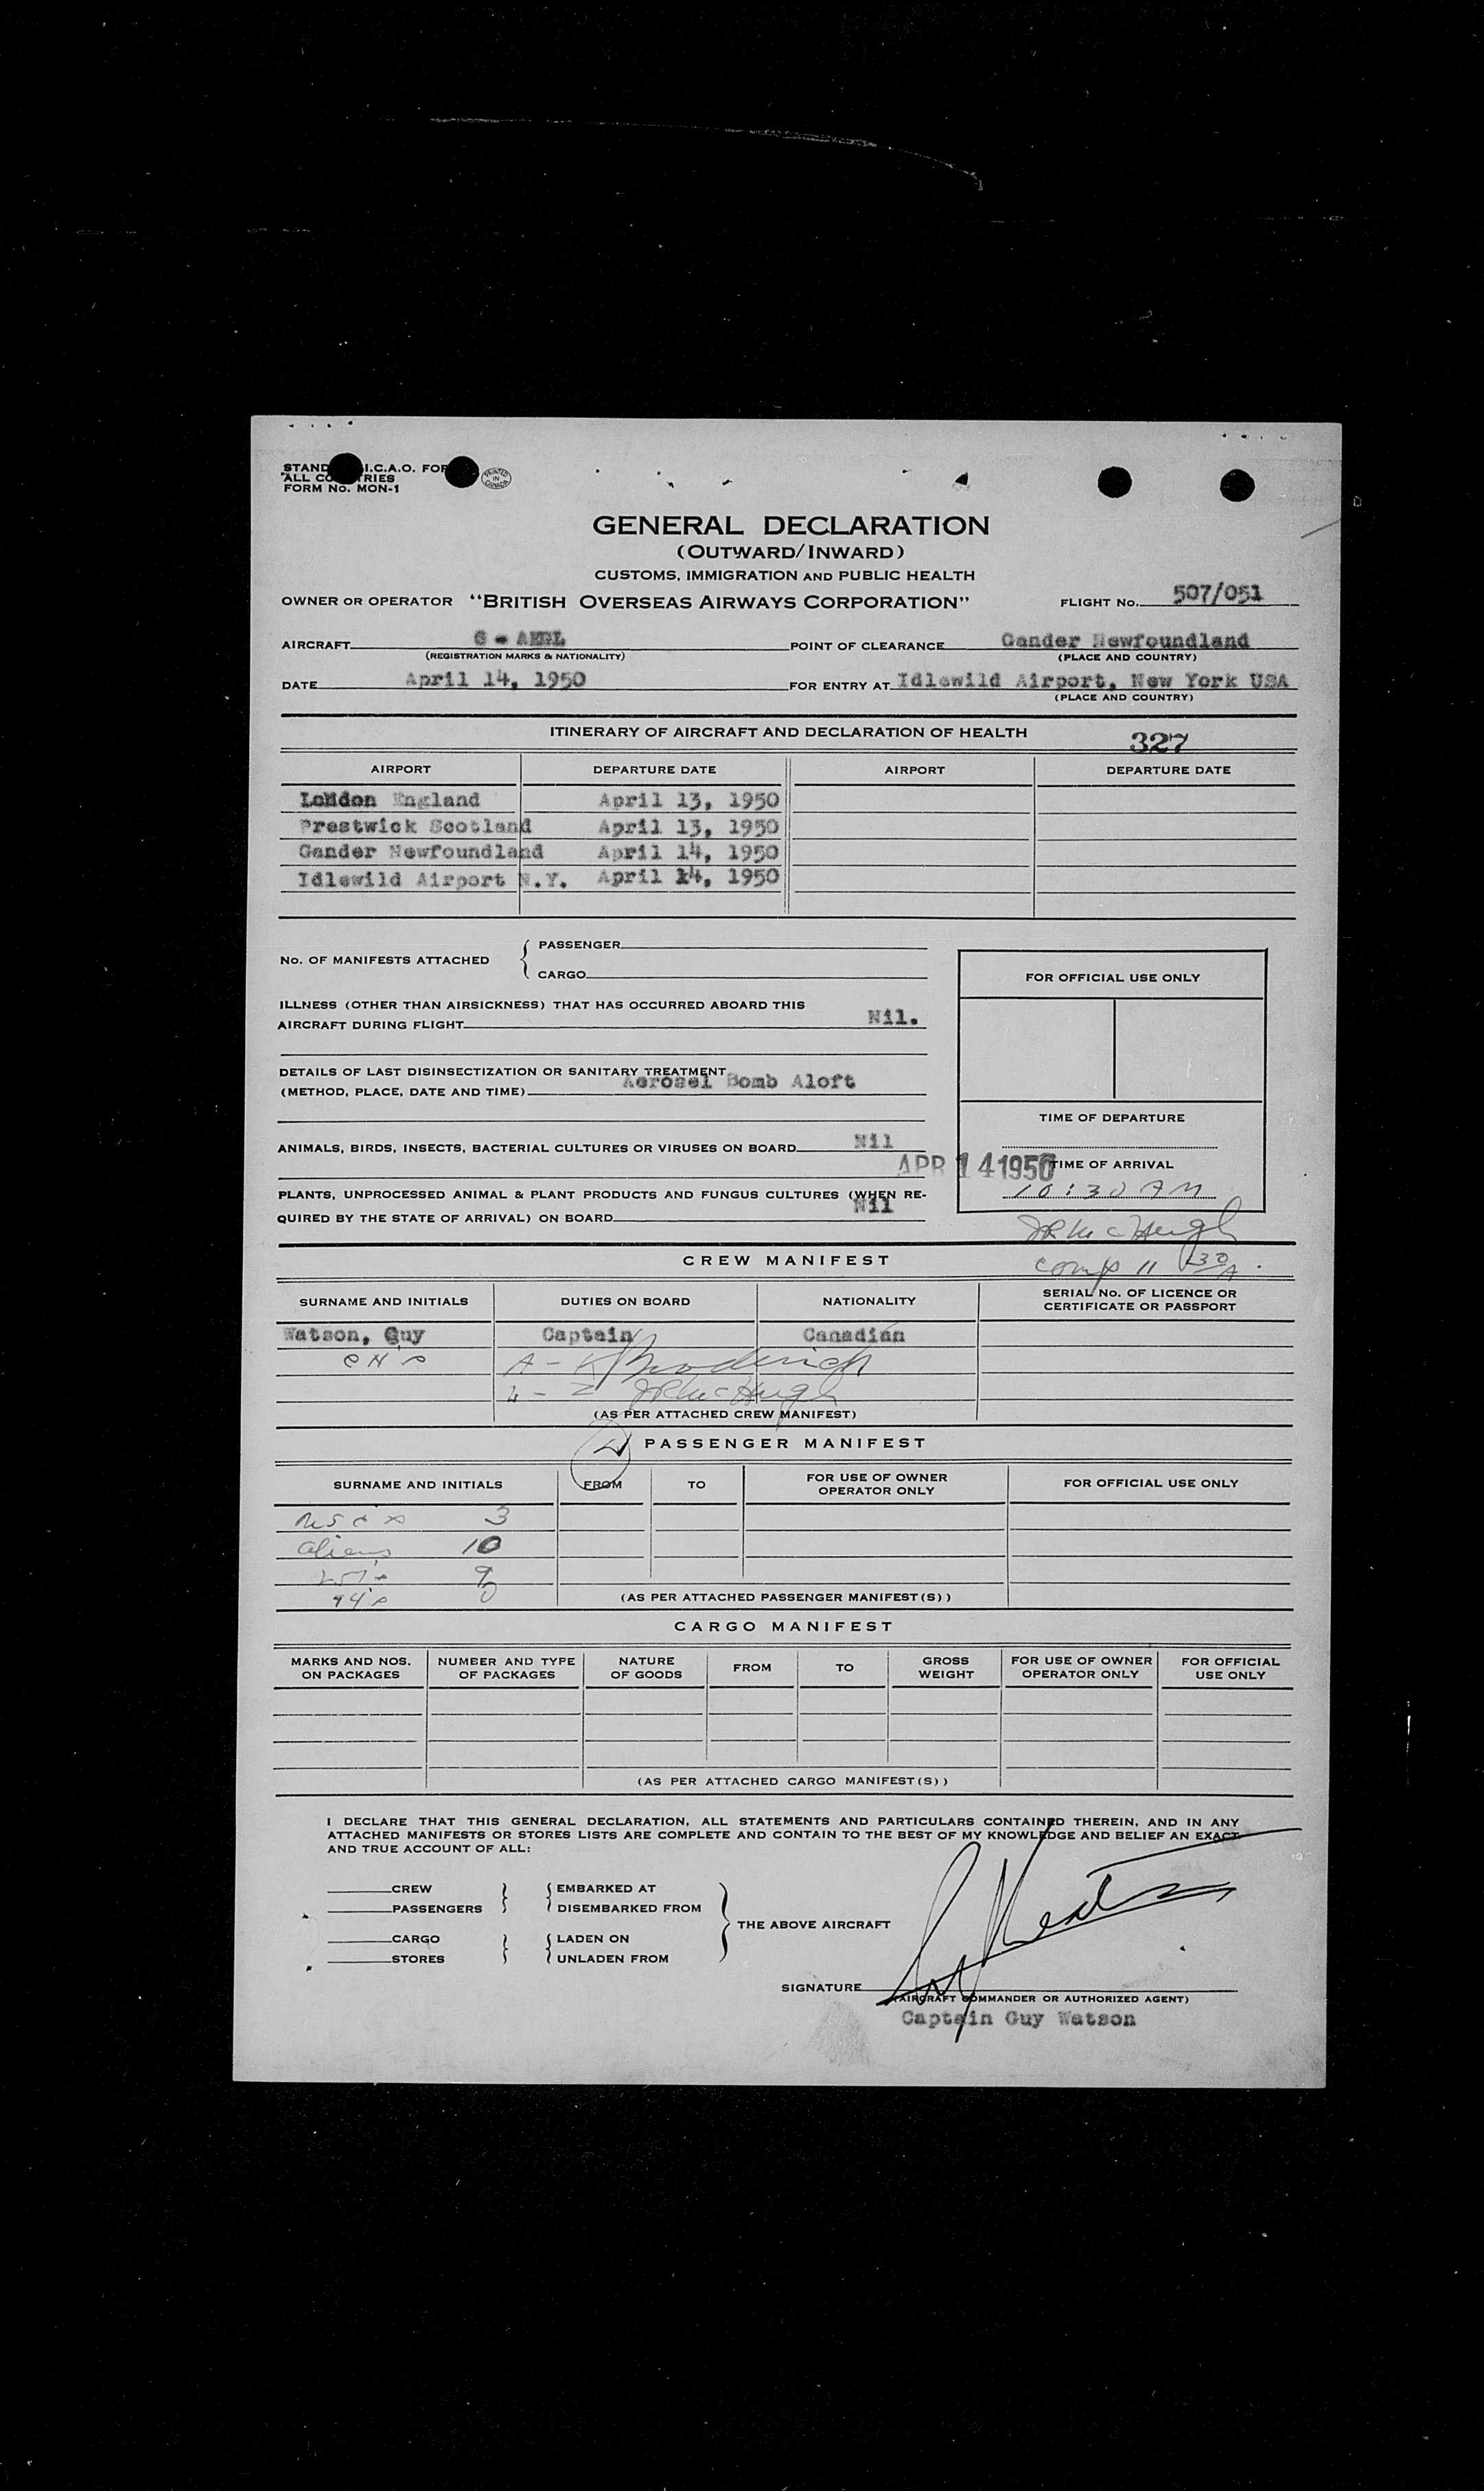 STAND I.C.A.O. FOR
ALL CO TRIES
FORM No. MON-1
PRINTED IN CANADA
GENERAL DECLARATION
(OUTWARD/INWARD)
CUSTOMS, IMMIGRATION AND PUBLIC HEALTH
OWNER OR OPERATOR "BRITISH OVERSEAS AIRWAYS CORPORATION" FLIGHT No. 507/051
AIRCRAFT G - POINT OF CLEARANCE Gander Newfoundland
(REGISTRATION MARKS & NATIONALITY) (PLACE AND COUNTRY)
DATE April 14, 1950 FOR ENTRY AT Idlewild Airport, New York USA
(PLACE AND COUNTRY)
ITINERARY OF AIRCRAFT AND DECLARATION OF HEALTH 327
AIRPORT DEPARTURE DATE AIRPORT DEPARTURE DATE
London England April 13, 1950
Prestwick Scotland April 13, 1950
Gander Newfoundland April 14, 1950
Idlewild Airport N.Y. April 14, 1950
No. OF MANIFESTS ATTACHED { PASSENGER
CARGO
FOR OFFICIAL USE ONLY
ILLNESS (OTHER THAN AIRSICKNESS) THAT HAS OCCURRED ABOARD THIS
AIRCRAFT DURING FLIGHT Nil.
DETAILS OF LAST DISINSECTIZATION OR SANITARY TREATMENT
(METHOD, PLACE, DATE AND TIME) Aerosel Bomb Aloft
TIME OF DEPARTURE
ANIMALS, BIRDS, INSECTS, BACTERIAL CULTURES OR VIRUSES ON BOARD Nil
APR 14 1950 TIME OF ARRIVAL
10:30 AM
PLANTS, UNPROCESSED ANIMAL & PLANT PRODUCTS AND FUNGUS CULTURES (WHEN RE-
QUIRED BY THE STATE OF ARRIVAL) ON BOARD Nil
McHugh
CREW MANIFEST comp 11 30 A
SURNAME AND INITIALS DUTIES ON BOARD NATIONALITY SERIAL No. OF LICENCE OR
CERTIFICATE OR PASSPORT
Watson, Guy Captain Canadian
A - K Broderick
L - Z McHugh
(AS PER ATTACHED CREW MANIFEST)
PASSENGER MANIFEST
SURNAME AND INITIALS FROM TO FOR USE OF OWNER
OPERATOR ONLY FOR OFFICIAL USE ONLY
3
aliens 10
9
(AS PER ATTACHED PASSENGER MANIFEST(S))
CARGO MANIFEST
MARKS AND NOS.
ON PACKAGES NUMBER AND TYPE
OF PACKAGES NATURE
OF GOODS FROM TO GROSS
WEIGHT FOR USE OF OWNER
OPERATOR ONLY FOR OFFICIAL
USE ONLY
(AS PER ATTACHED CARGO MANIFEST(S))
I DECLARE THAT THIS GENERAL DECLARATION, ALL STATEMENTS AND PARTICULARS CONTAINED THEREIN, AND IN ANY
ATTACHED MANIFESTS OR STORES LISTS ARE COMPLETE AND CONTAIN TO THE BEST OF MY KNOWLEDGE AND BELIEF AN EXACT
AND TRUE ACCOUNT OF ALL:
CREW EMBARKED AT
PASSENGERS DISEMBARKED FROM
THE ABOVE AIRCRAFT
CARGO LADEN ON
STORES UNLADEN FROM
SIGNATURE Guy Watson
(AIRCRAFT COMMANDER OR AUTHORIZED AGENT)
Captain Guy Watson